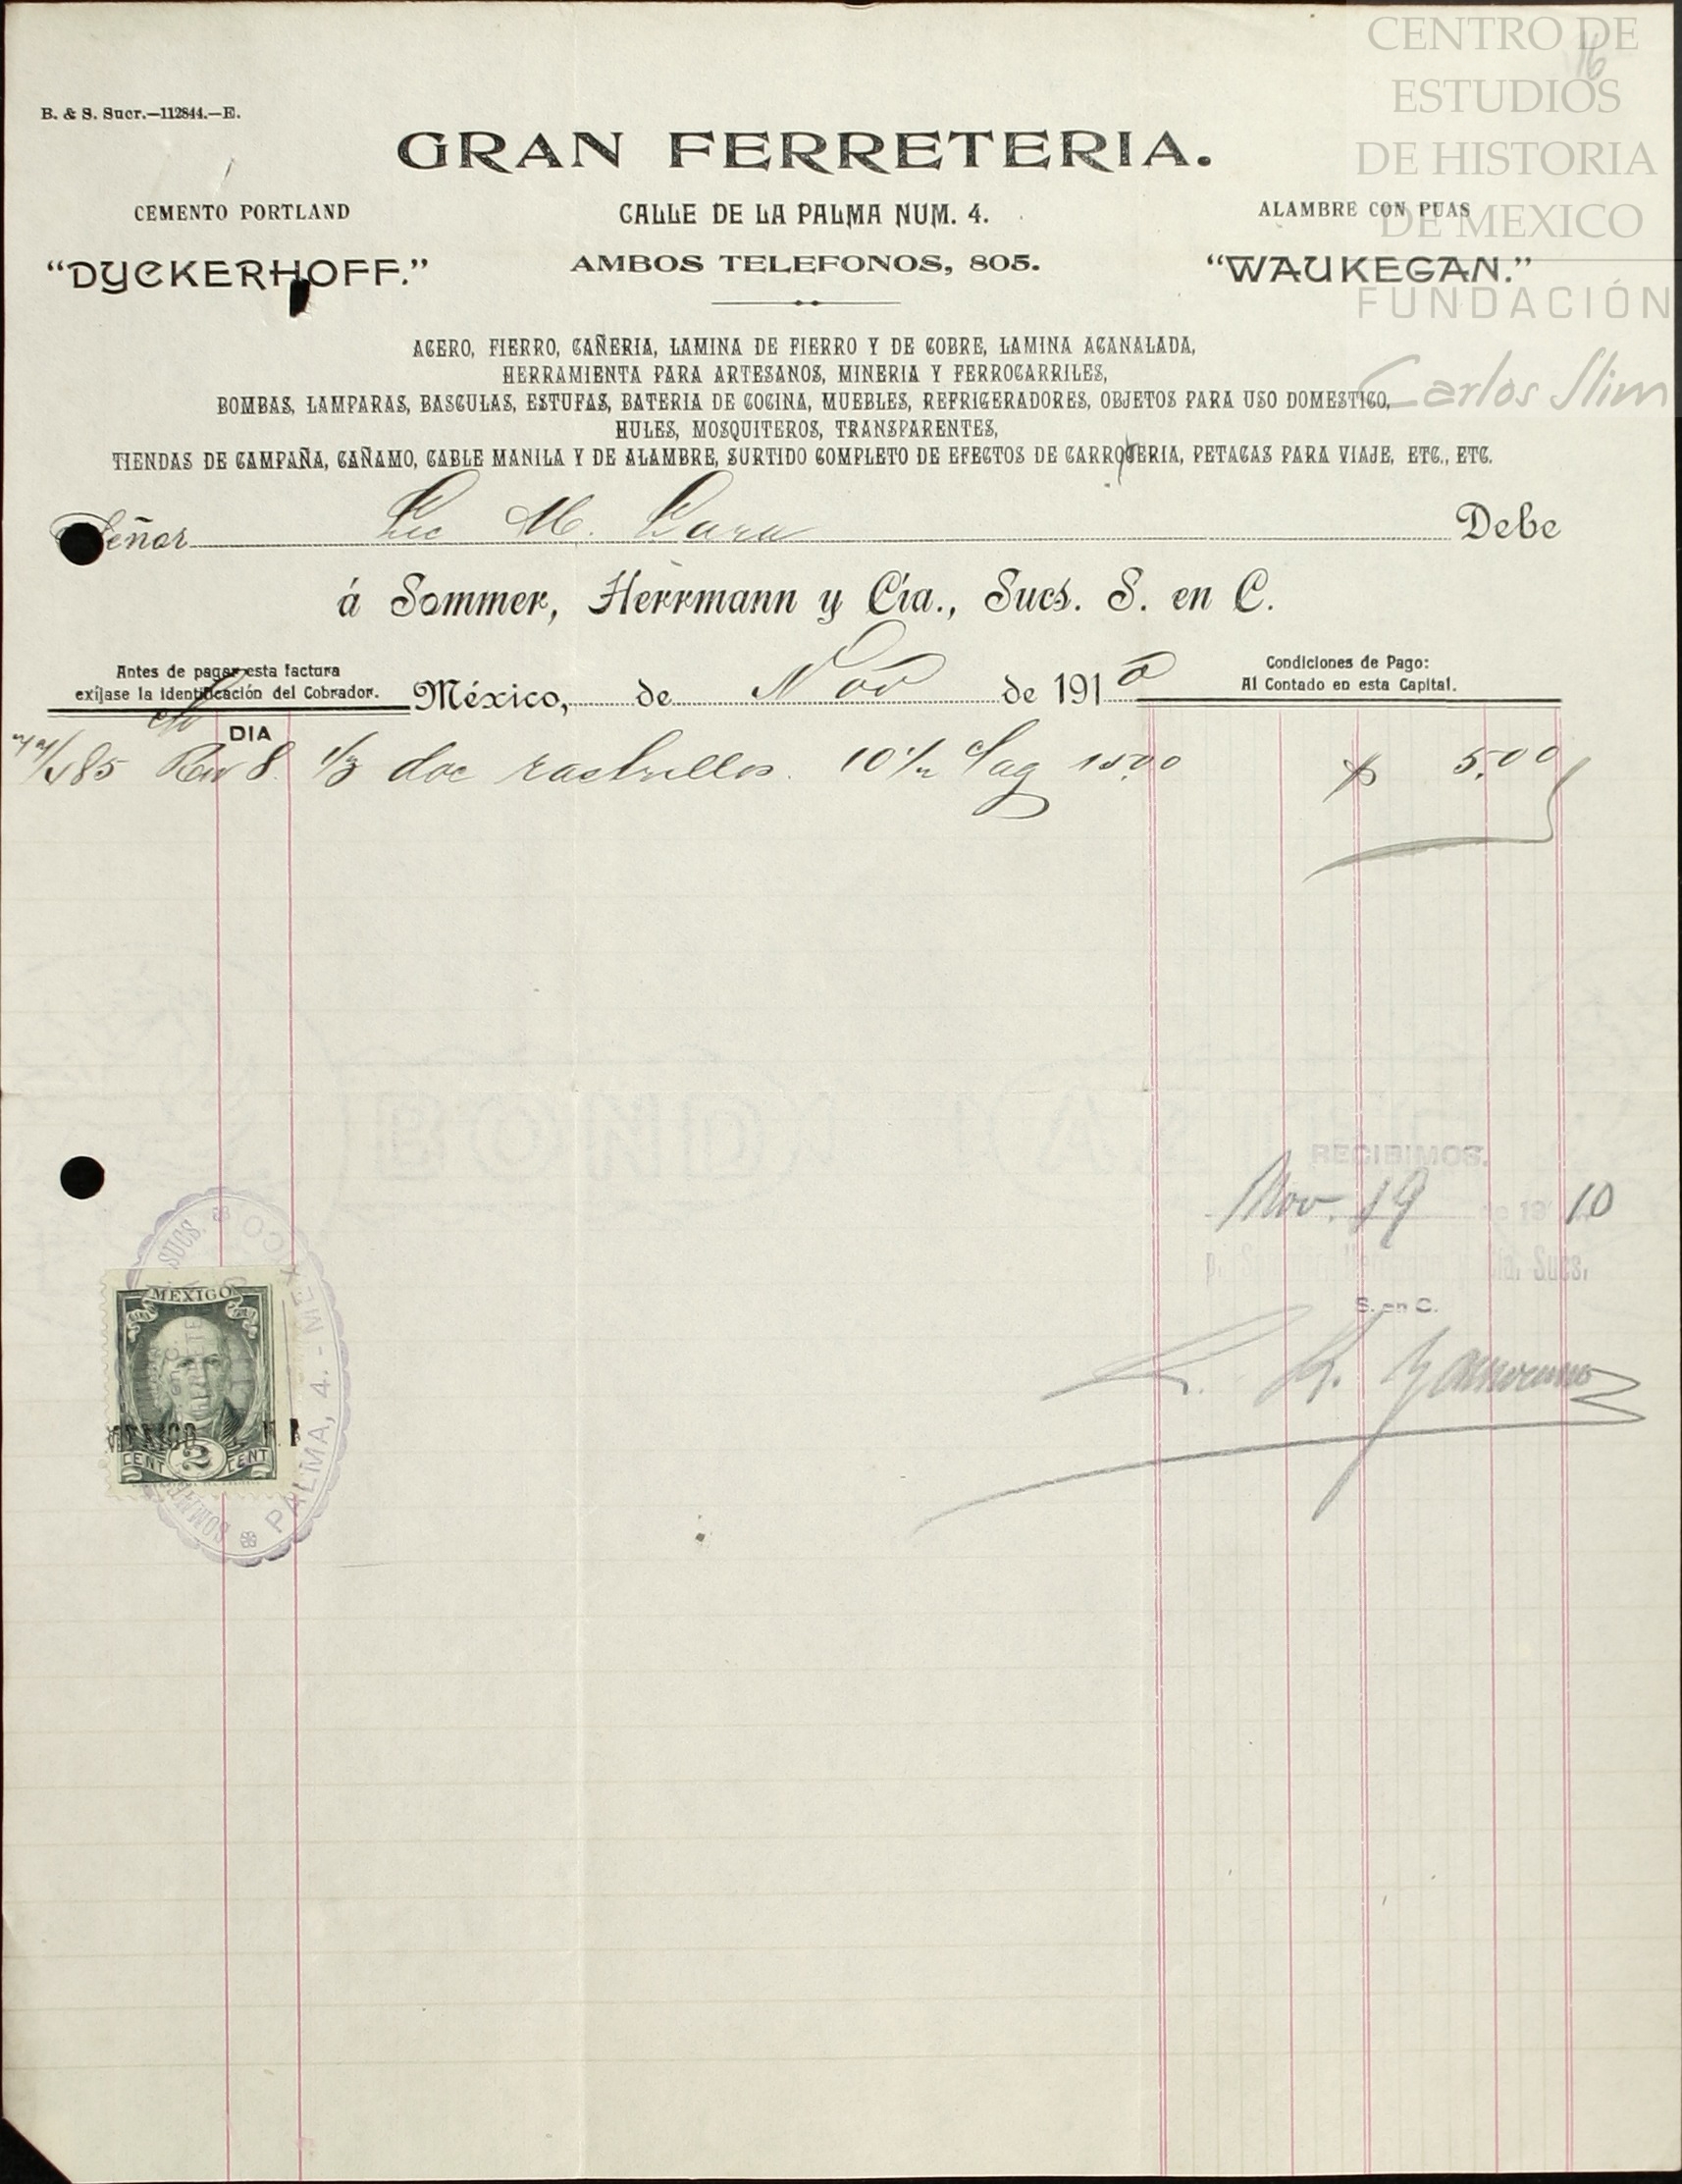 CENTRO DE
ESTUDIOS
DE HISTORIA
DE MEXICO
FUNDACIÓN
Carlos Slim
16
B. & S. Sucr.—112844.—E.
GRAN FERRETERIA.
CEMENTO PORTLAND
"DYCKERHOFF."
CALLE DE LA PALMA NUM. 4.
AMBOS TELEFONOS, 805.
ALAMBRE CON PUAS
"WAUKEGAN."
ACERO, FIERRO, CAÑERIA, LAMINA DE FIERRO Y DE COBRE, LAMINA ACANALADA,
HERRAMIENTA PARA ARTESANOS, MINERIA Y FERROCARRILES,
BOMBAS, LAMPARAS, BASCULAS, ESTUFAS, BATERIA DE COCINA, MUEBLES, REFRIGERADORES, OBJETOS PARA USO DOMESTICO,
HULES, MOSQUITEROS, TRANSPARENTES,
TIENDAS DE CAMPAÑA, CAÑAMO, CABLE MANILA Y DE ALAMBRE, SURTIDO COMPLETO DE EFECTOS DE CARROCERIA, PETACAS PARA VIAJE, ETC., ETC.
Señor Lic M. Lara Debe
á Sommer, Herrmann y Cía., Sucs. S. en C.
Antes de pagar esta factura
exíjase la identificación del Cobrador.
México, de Nov de 1910
Condiciones de Pago:
Al Contado en esta Capital.
DIA
85 8. 1/3 doc rastrillos. 15.00 $ 5.00
RECIBIMOS.
Nov. 19 de 1910
p. Sommer, Herrmann y Cia. Sucs.
S. en C.
MEXICO
CENT 2 CENT
PALMA, 4. - MEXICO
SUCS.